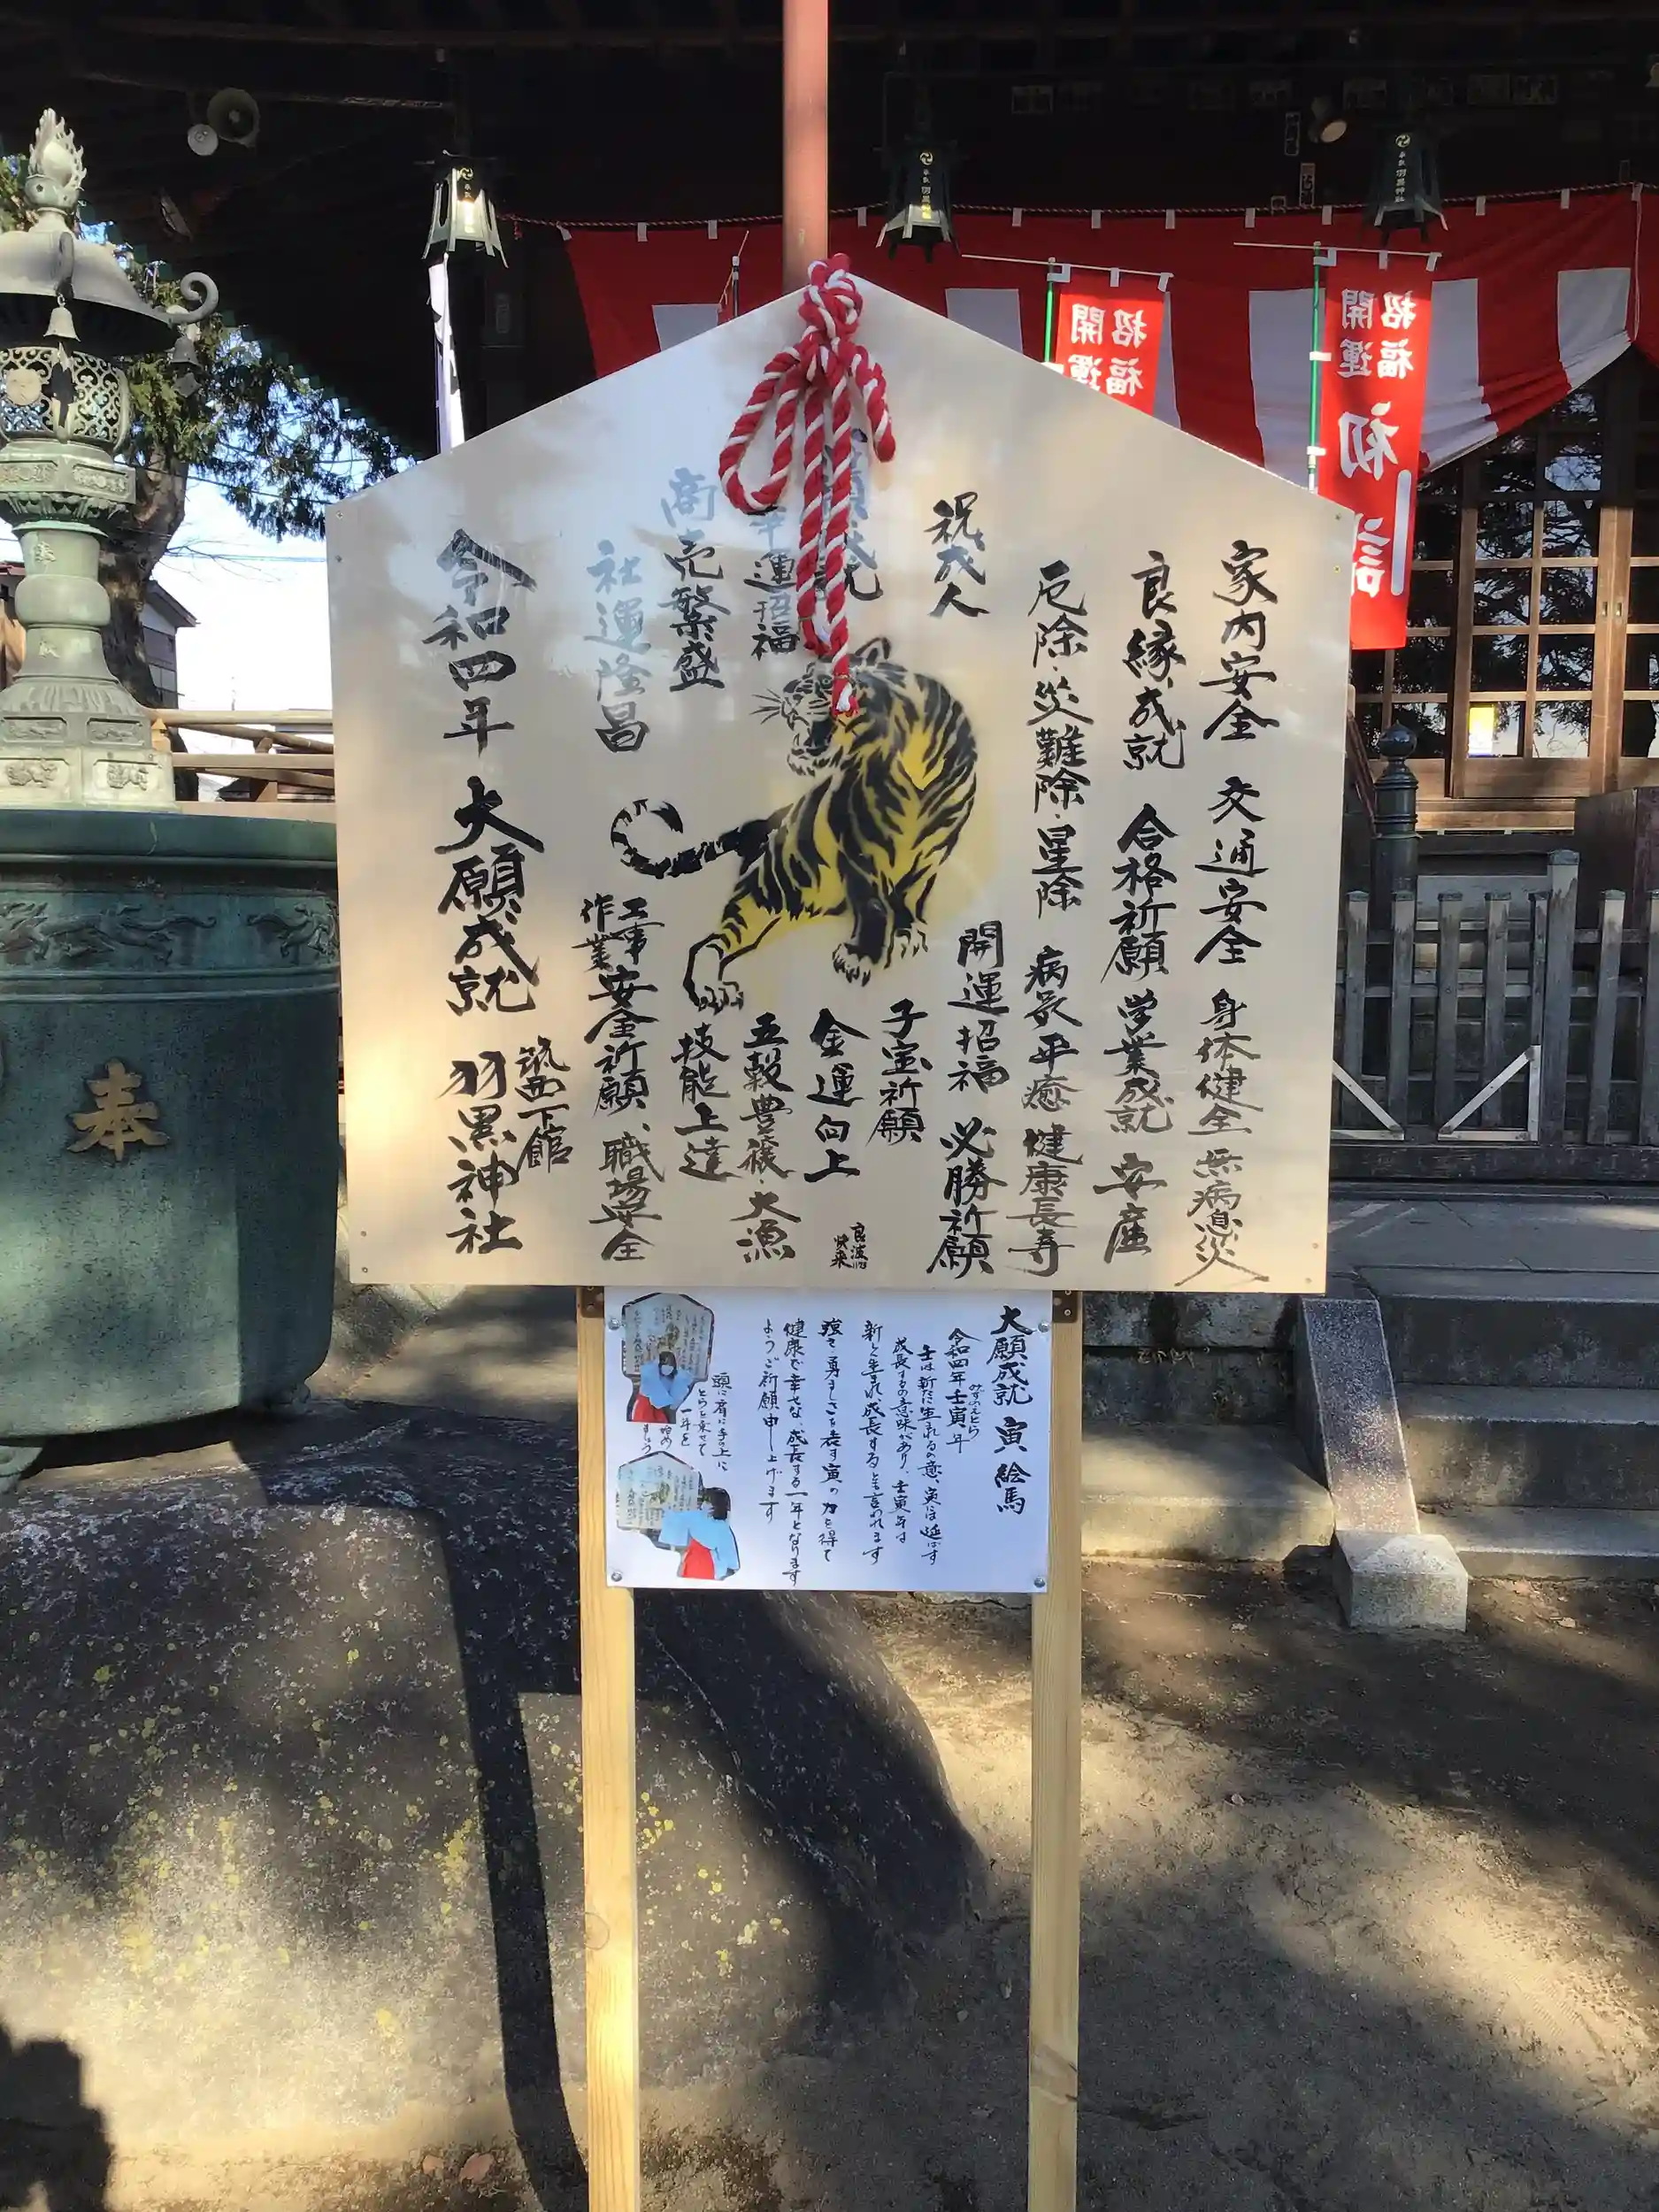 家内安全 交通安全 身体健全 無病息災
良縁成就 合格祈願 学業成就 安産
厄除・災難除・星除 病気平癒 健康長寿
祝成人
開運招福 必勝祈願
子宝祈願
金運向上
幸運招福
五穀豊穣・大漁
商売繁盛
技能上達
社運隆昌
工事
作業
安全祈願、職場安全
令和四年 大願成就
筑西下館
羽黒神社
大願成就 寅絵馬
令和四年壬寅年
みずのえとら
壬は新たに生れるの意、寅には延ばす
成長するの意味があり、壬寅年は
新しく生まれ成長すると言われます
強さ、勇ましさを表す寅の力を得て
健康で幸せな、成長する一年となります
ようご祈願申し上げます
頭に肩に手の上に
とらを乗せて
一年を
奉
招福
開運
招福
開運
初